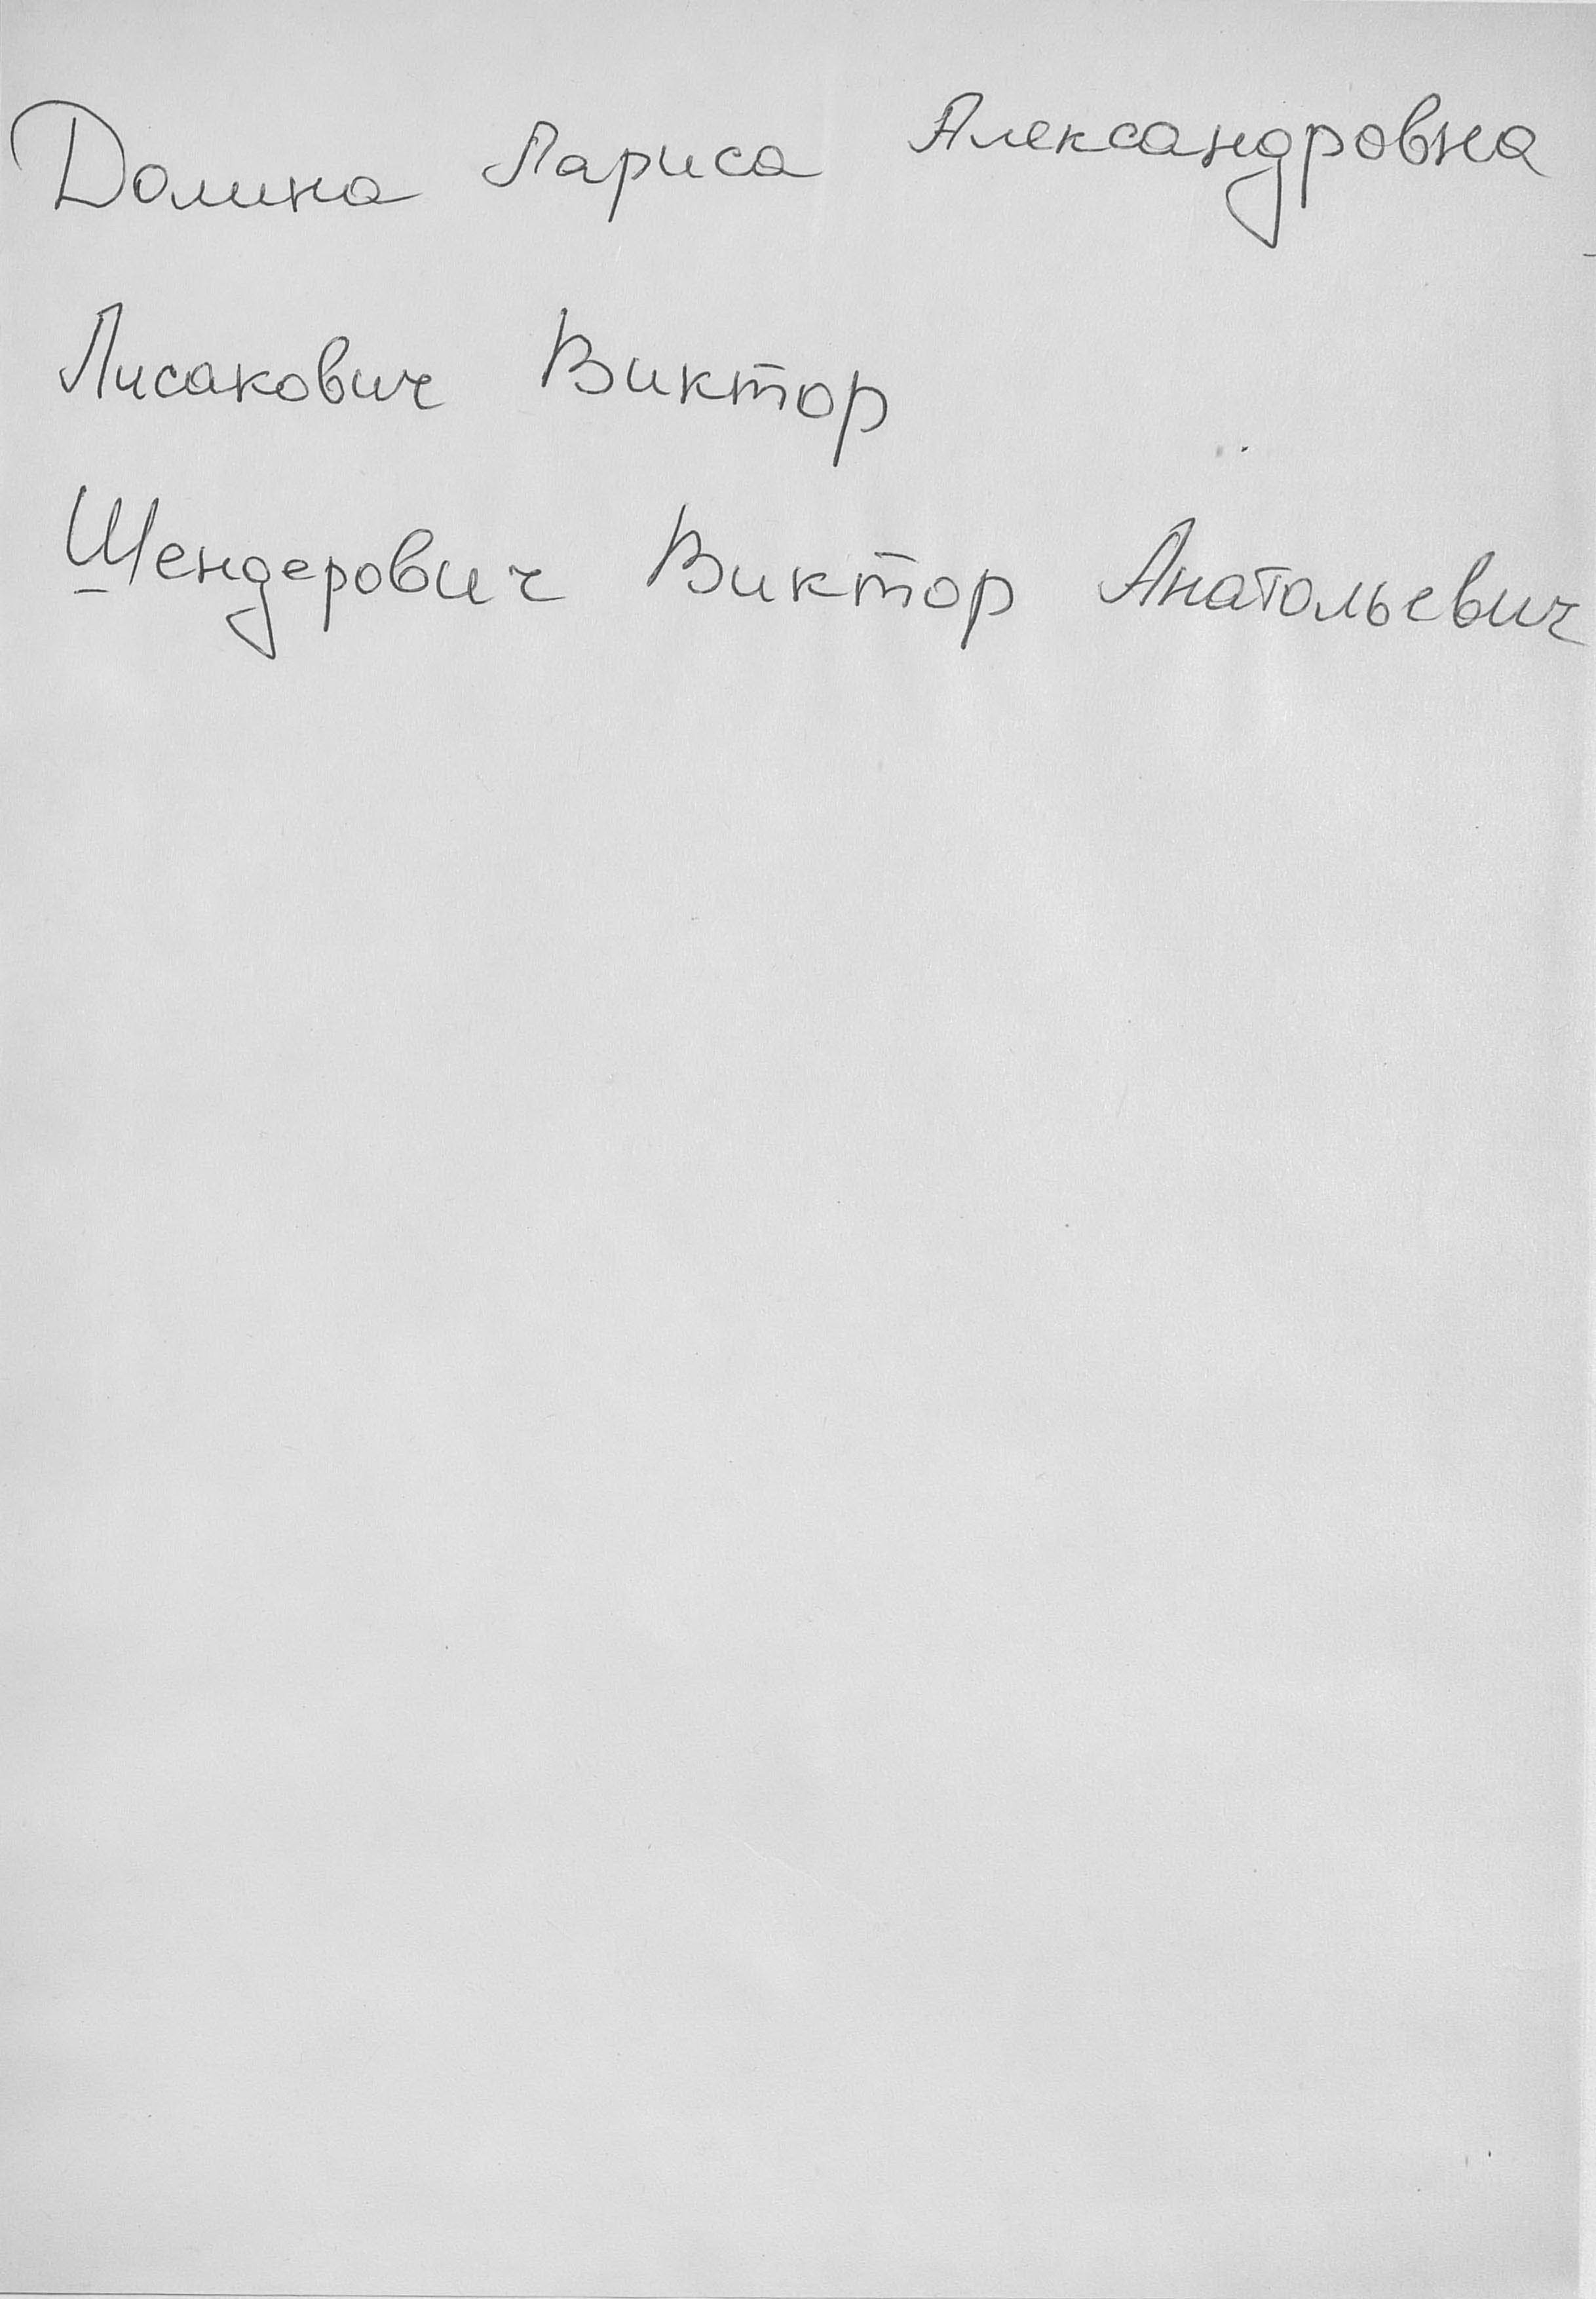 Долина Лариса Александровна
Лисакович Виктор
Шендерович Виктор Анатольевич